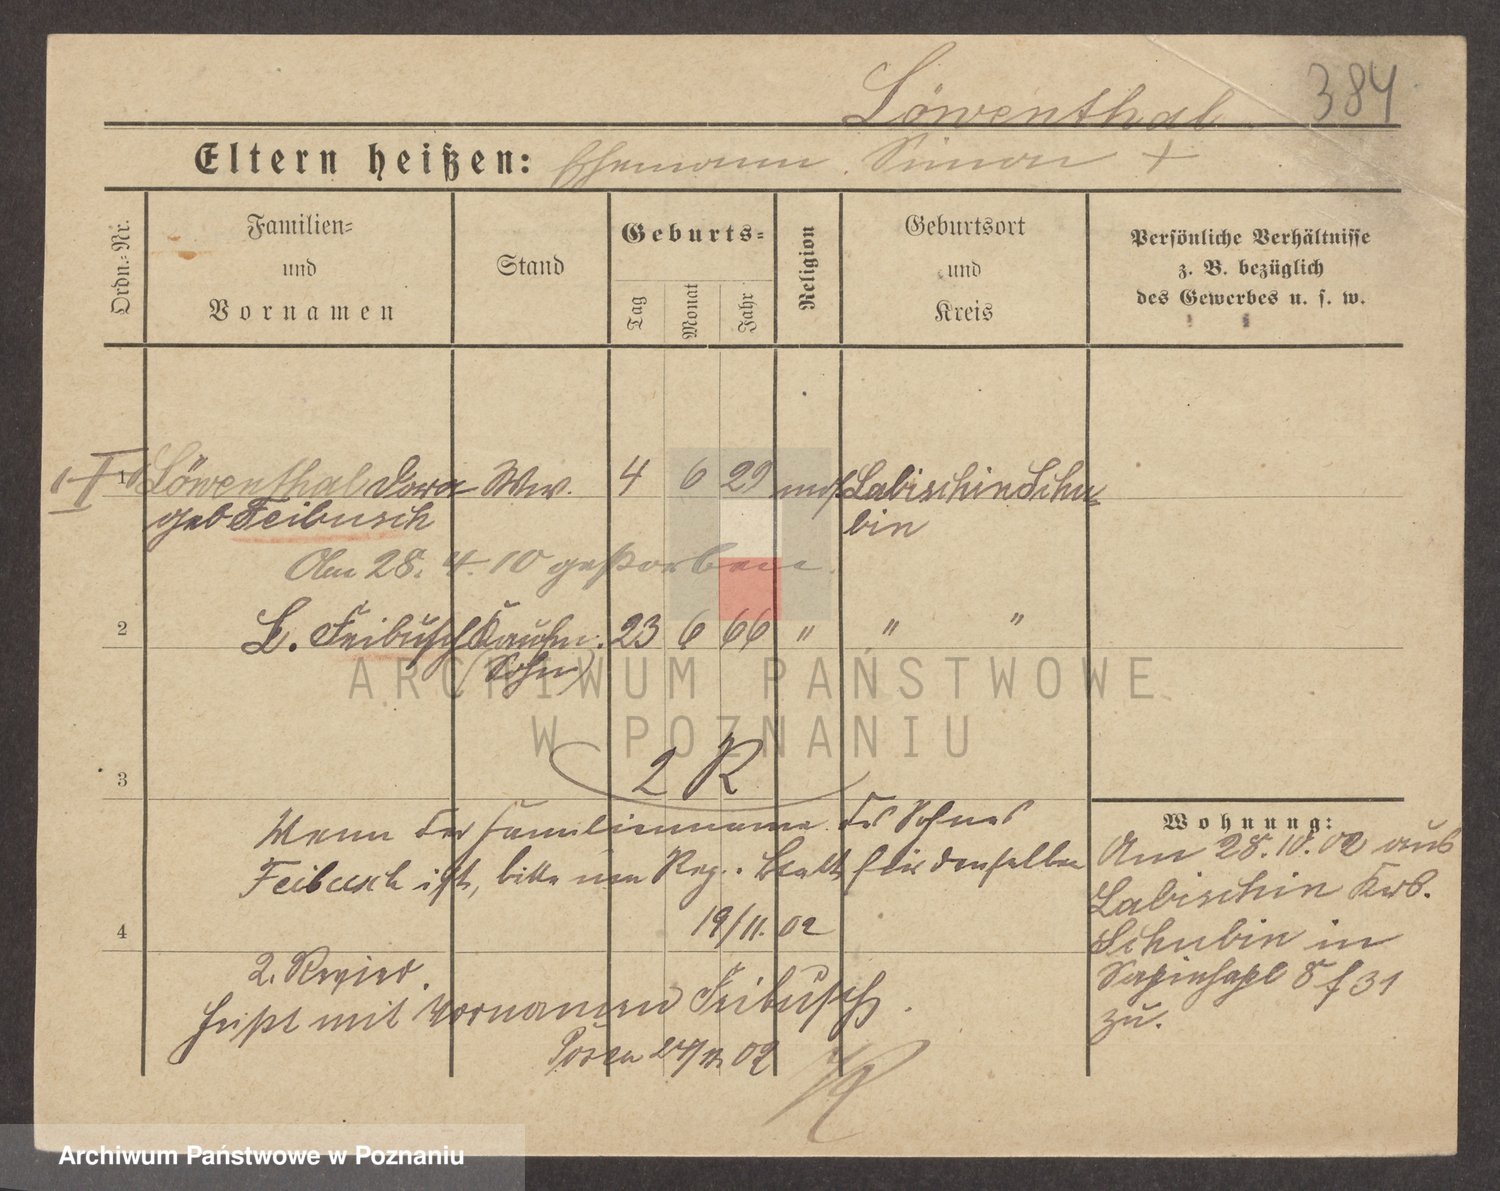 384
Löwenthal
Eltern heißen: Ehemann Simon +
Ordn.-Nr.
Familien-
und
Vornamen
Stand
Geburts-
Tag
Monat
Jahr
Religion
Geburtsort
und
Kreis
Persönliche Verhältnisse
z. B. bezüglich
des Gewerbes u. s. w.
1 Löwenthal Dora Ww. 4 6 29 mos Labischin Schu-
geb Feibusch bin
Am 28. 4. 10 gestorben.
2 L. Feibusch Kaufm. 23 6 66 " " "
(Sohn)
ARCHIWUM PAŃSTWOWE
W POZNANIU
2 R
3
Wenn der Familienname des Sohnes
Feibusch ist, bitte um Reg. Blatt für denselben
19/11. 02
4
2. Revier.
heißt mit Vornamen Feibusch.
Posen 24/11 02
Wohnung:
Am 28.10.02 aus
Labischin Krs.
Schubin in
Sapiehapl 8 f 31
zu.
Archiwum Państwowe w Poznaniu